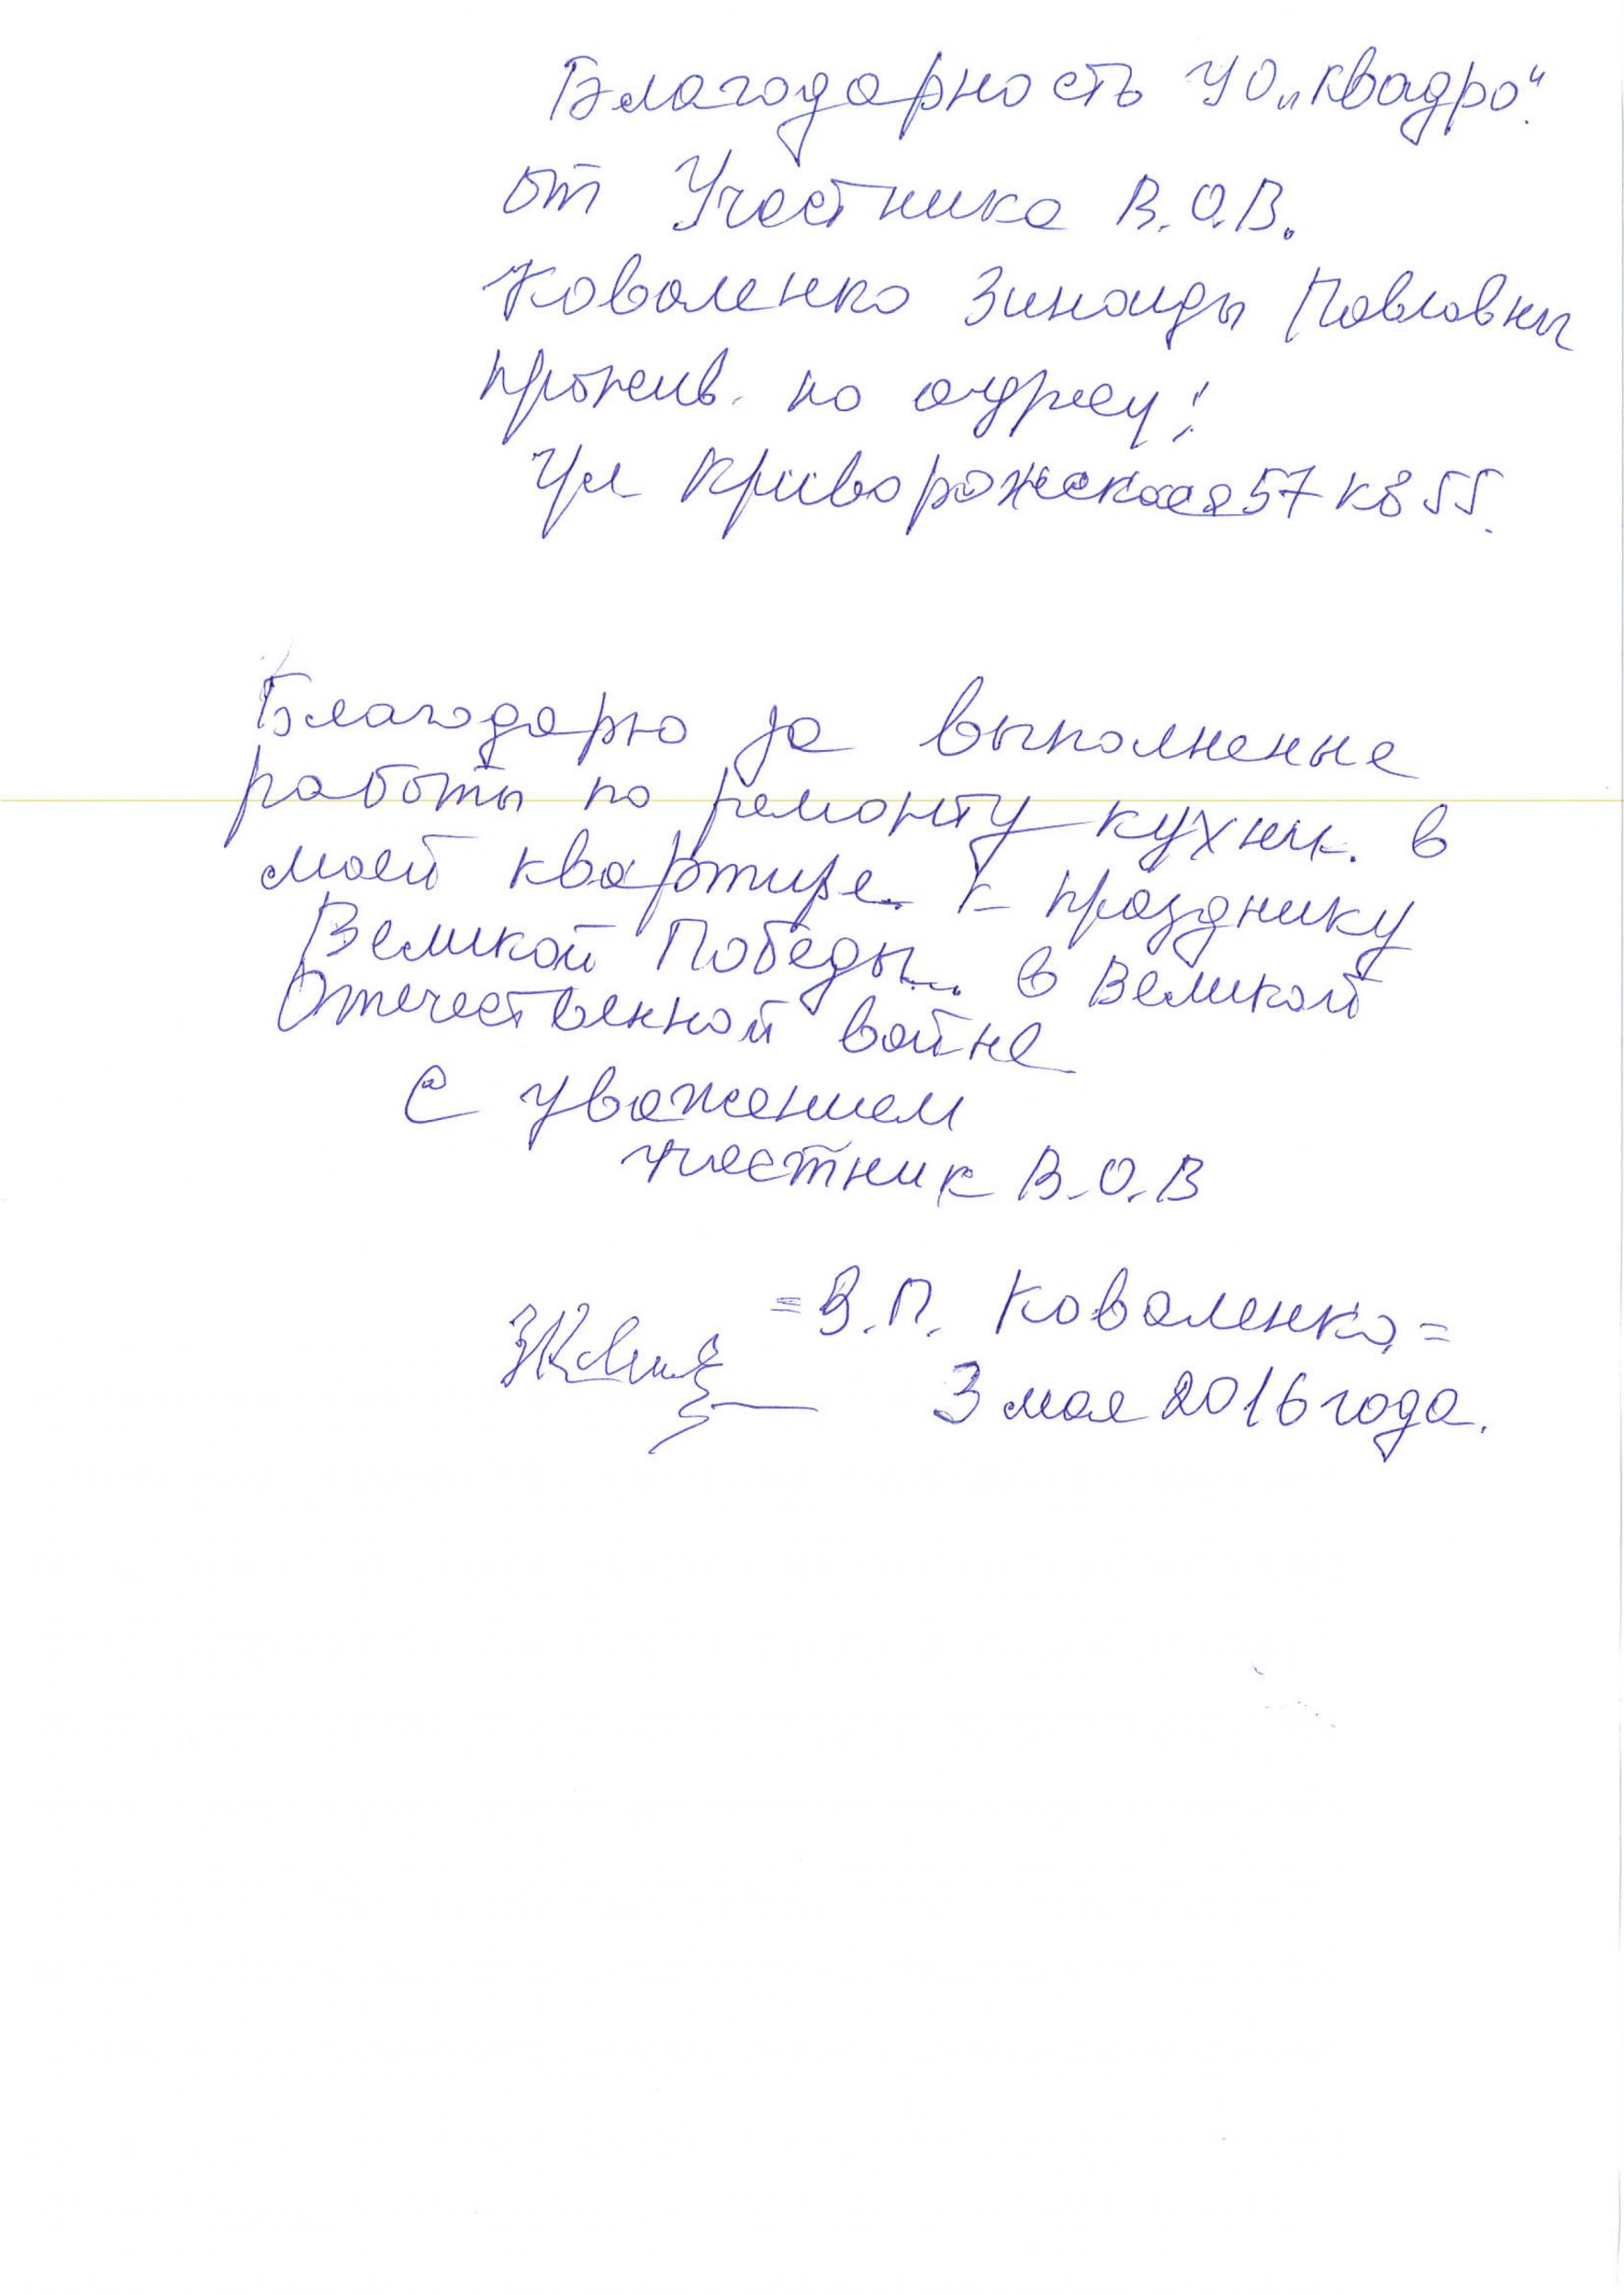 Благодарность УО „Квадро“.
от Участника В.О.В.
Коваленко Зинаиды Павловны
прожив. по адресу:
Ул Криворожская 57 кв 55.
Благодарю за выполненые
работы по ремонту кухни. в
моей квартире. К празднику
Великой Победы... в Великой
Отечественной войне
С уважением
участник В.О.В
=З.П. Коваленко=
3 мая 2016 года.